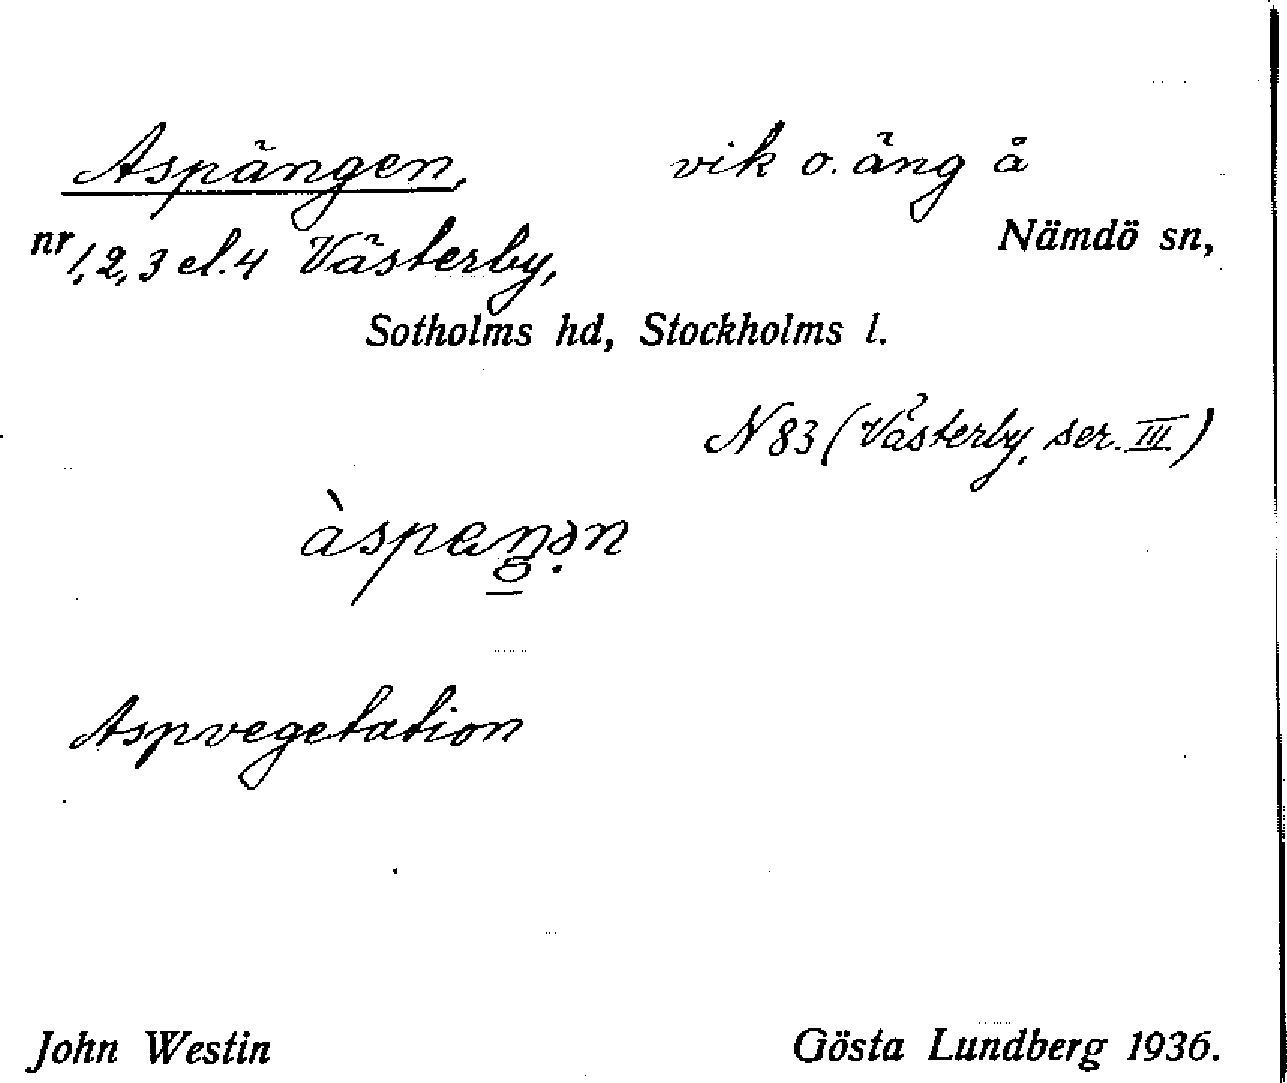 Aspängen, vik o. äng å
nr 1, 2, 3 el. 4 Västerby, Nämdö sn,
Sotholms hd, Stockholms l.
N 83 (Västerby, ser. III)
àspaŋə̣n
Aspvegetation
John Westin Gösta Lundberg 1936.